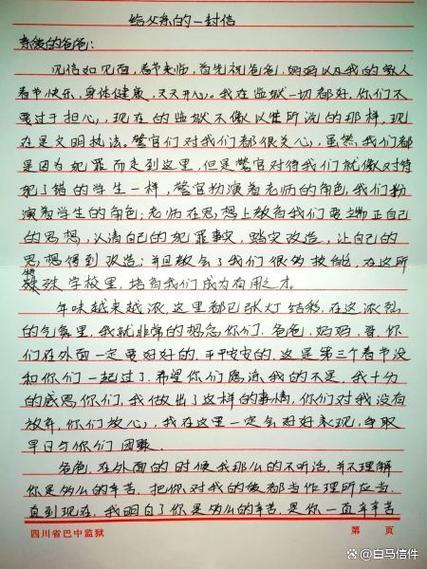 给父亲的一封信
亲爱的爸爸:
见信如见面,春节来临,首先祝爸爸,妈妈以及我的家人
春节快乐,身体健康,天天开心。我在监狱一切都好,你们不
要过于担心,现在的监狱不像以往所说的那样,现
在是文明执法。警官们对我们都很关心,虽然,我们都
是因为犯罪而走到这里,但是警官对待我们就像对待
犯了错的学生一样,警官扮演着老师的角色,我们扮
演着学生的角色;老师在思想上教育我们要端正自己
的思想,认清自己的犯罪事实,踏实改造,让自己的
思想得到改造,并且教会了我们很多技能,在这所
特殊学校里,培育我们成为有用之才。
年味越来越浓,这里都已张灯结彩,在这浓烈
的气氛里,我就非常的想念你们,爸爸,妈妈,哥,你
们在外面一定要好好的,平平安安的,这是第三个春节没
和你们一起过了,希望你们原谅我的不是,我十分
的感恩你们,我做出了这样的事情,你们对我没有
放弃,你们放心,我在这里一定会好好表现,争取
早日与你们团聚。
爸爸,在外面的时候我那么的不听话,并不理解
你是多么的辛苦,把你对我的爱都当作理所应当,
直到现在,我明白了你是多么的辛苦,是你一直辛辛苦
四川省巴中监狱
第 页
@白马信件